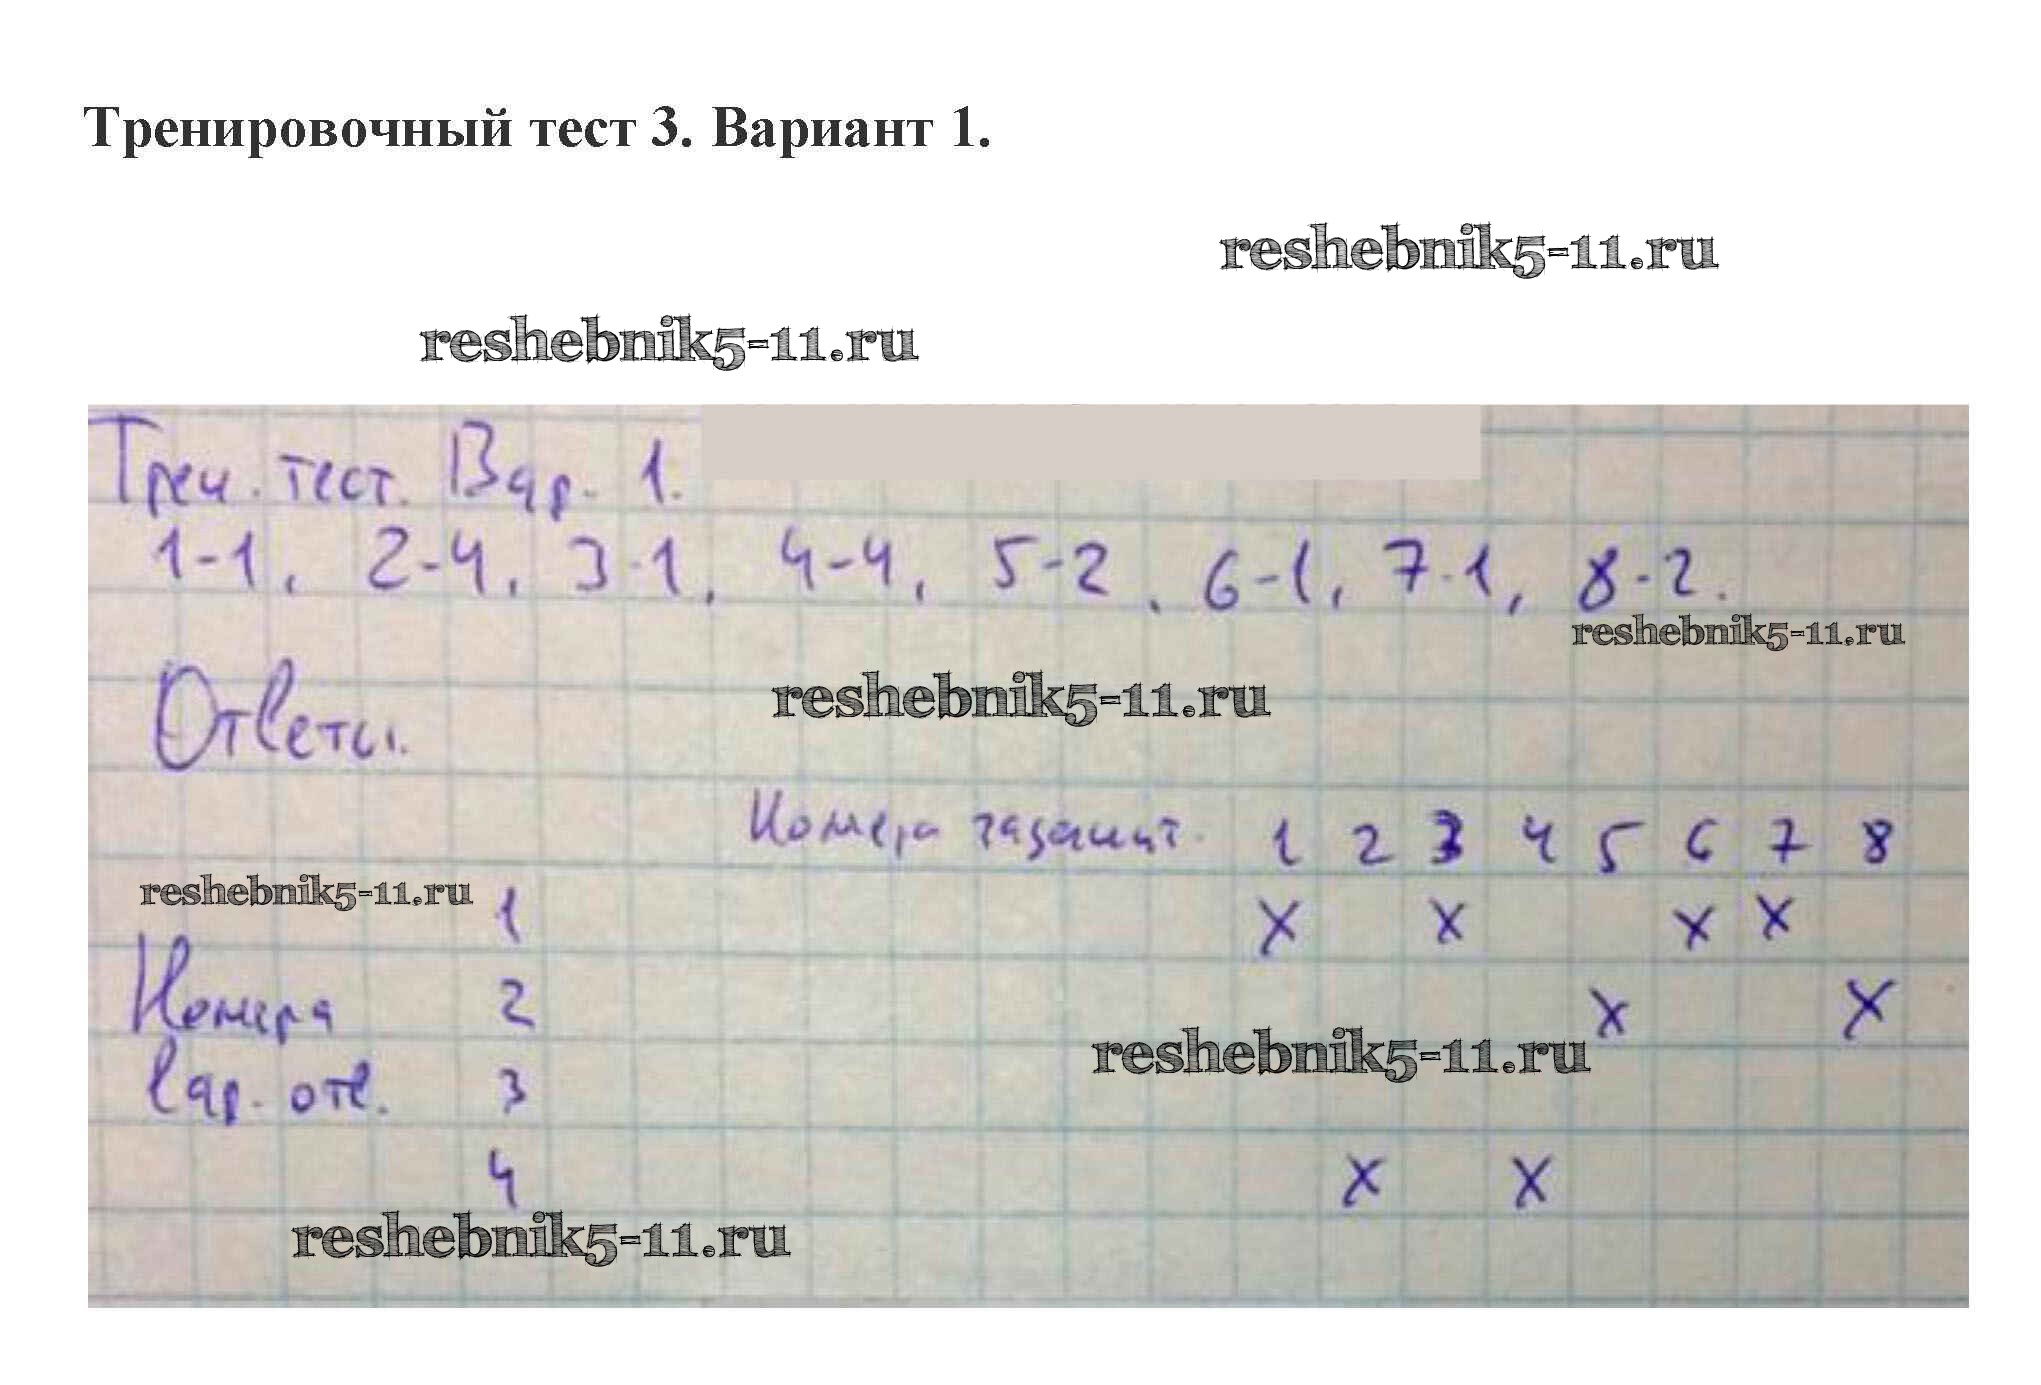 Тренировочный тест 3. Вариант 1.
reshebnik5-11.ru
reshebnik5-11.ru
Трен. тест. Вар. 1.
1-1, 2-4, 3-1, 4-4, 5-2, 6-1, 7-1, 8-2.
reshebnik5-11.ru
reshebnik5-11.ru
Ответы.
Номера 1 2 3 4 5 6 7 8
reshebnik5-11.ru
1 X X X X
Номера 2 X X
reshebnik5-11.ru
Вар. отв. 3
4 X X
reshebnik5-11.ru